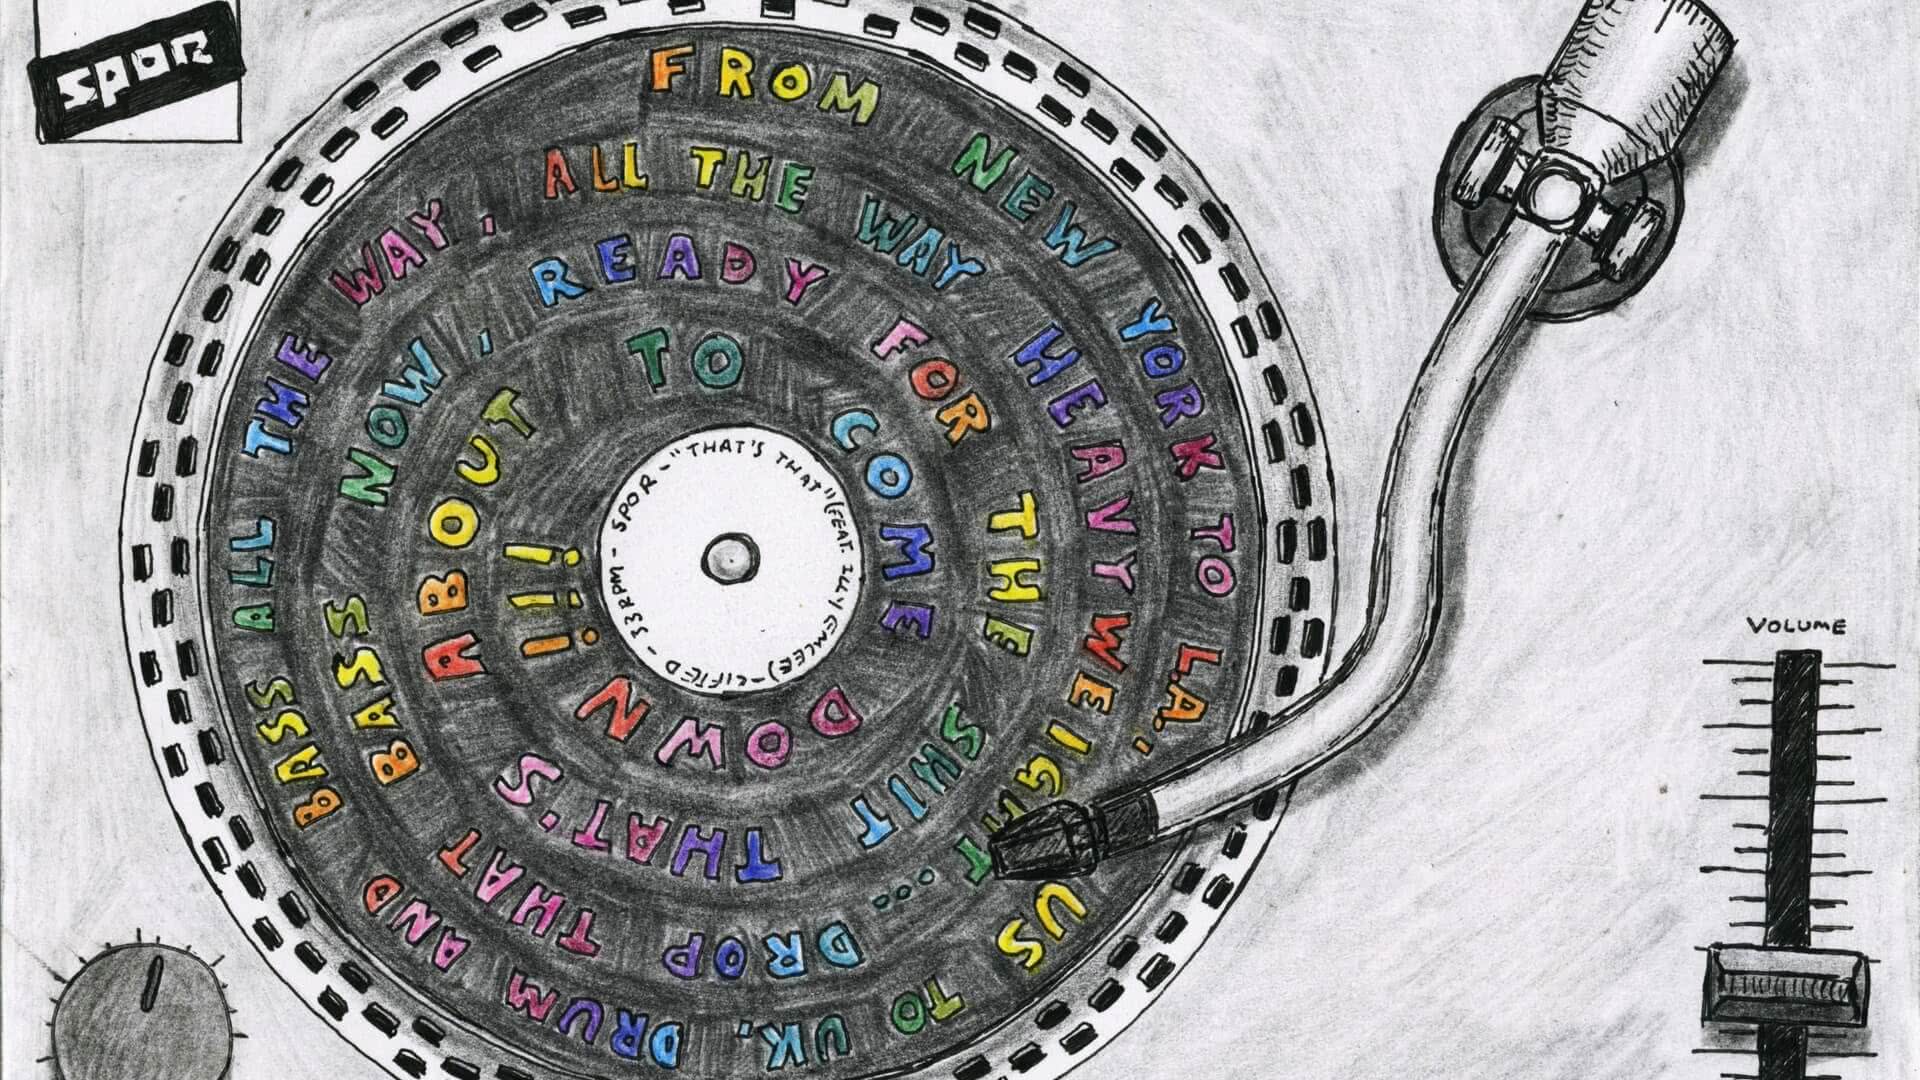 SPOR
FROM NEW YORK TO L.A., US TO UK, DRUM AND BASS ALL THE WAY, ALL THE WAY HEAVYWEIGHT... DROP THAT BASS NOW, READY FOR THE SWIT THAT'S ABOUT TO COME DOWN !!!
SPOR - "THAT'S THAT" (FEAT. ILLY EMCEE) - LIFTED - 33RPM -
VOLUME